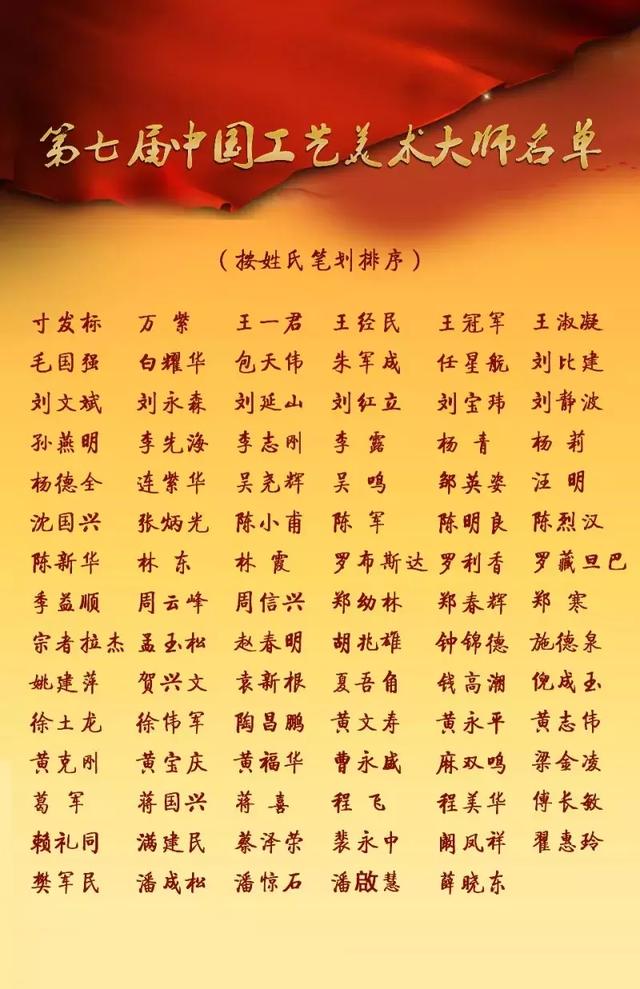 第七届中国工艺美术大师名单
（按姓氏笔划排序）
寸发标 万 紫 王一君 王经民 王冠军 王淑凝
毛国强 白耀华 包天伟 朱军成 任星航 刘比建
刘文斌 刘永森 刘延山 刘红立 刘宝玮 刘静波
孙燕明 李先海 李志刚 李 露 杨 青 杨 莉
杨德全 连紫华 吴尧辉 吴 鸣 邹英姿 汪 明
沈国兴 张炳光 陈小甫 陈 军 陈明良 陈烈汉
陈新华 林 东 林 霞 罗布斯达 罗利香 罗藏旦巴
季益顺 周云峰 周信兴 郑幼林 郑春辉 郑 寒
宗者拉杰 孟玉松 赵春明 胡兆雄 钟锦德 施德泉
姚建萍 贺兴文 袁新根 夏吾角 钱高潮 倪成玉
徐土龙 徐伟军 陶昌鹏 黄文寿 黄永平 黄志伟
黄克刚 黄宝庆 黄福华 曹永盛 麻双鸣 梁金凌
葛 军 蒋国兴 蒋 喜 程 飞 程美华 傅长敏
赖礼同 满建民 蔡泽荣 裴永中 阚凤祥 翟惠玲
樊军民 潘成松 潘惊石 潘啟慧 薛晓东